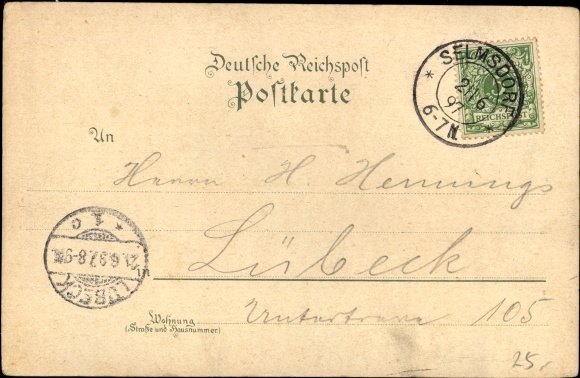 Deutsche Reichspost
Postkarte
SELMSDORF
21/6
97
6-7N.
REICHSPOST
An
Herrn H. Hennings
in Lübeck
LÜBECK
21.6.97.8-9N.
* 1 c
Wohnung
(Straße und Hausnummer)
Untertrave 105
25.-